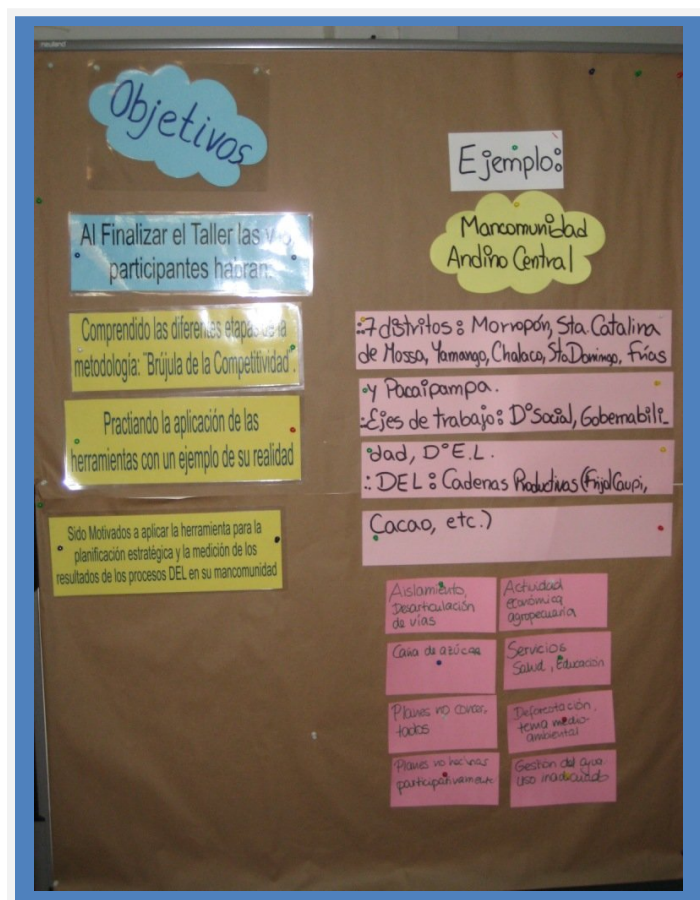 neuland
Objetivos
Al Finalizar el Taller las y
participantes habran:
Comprendido las diferentes etapas de la
metodología: "Brújula de la Competitividad".
Practiando la aplicación de las
herramientas con un ejemplo de su realidad
Sido Motivados a aplicar la herramienta para la
planificación estratégica y la medición de los
resultados de los procesos DEL en su mancomunidad
Ejemplo:
Mancomunidad
Andino Central
:.7 distritos: Morropón, Sta. Catalina
de Mossa, Yamango, Chalaco, Sta Domingo, Frías
y Pacaipampa.
:.Ejes de trabajo: D° Social, Gobernabili_
dad, D° E.L.
:. DEL: Cadenas Productivas (Frijol Caupi,
Cacao, etc.)
Aislamiento,
Desarticulación
de vías
Actividad
económica
agropecuaria
Caña de azúcar
Servicios
Salud, Educación
Planes no
tados
Deforestación,
tema medio-
ambiental
Planes no
participativamente
Gestión del agua.
uso inadecuado